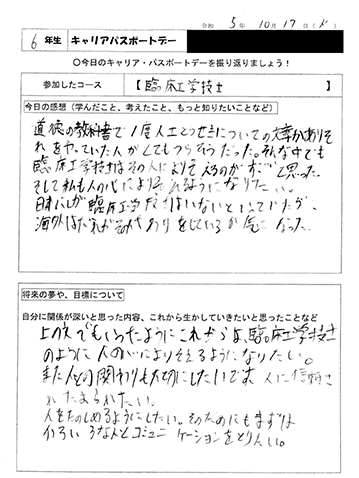 令和 5年 10月 17日(火)
6 年生 キャリアパスポートデー
〇今日のキャリア・パスポートデーを振り返りましょう！
参加したコース 【臨床工学技士 】
今日の感想（学んだこと、考えたこと、もっと知りたいことなど）
道徳の教科書で1度人工とうせきについての文章がありそ
れをやっていた人がとてもつらそうだった。そんな中でも
臨床工学技士はその人によりそえるのがすごいと思った。
そして私も人の心によりそえるようになりたい。
日本にしか臨床工学技士はいないといっていたが、
海外はだれがその代わりをしているか気になった。
将来の夢や、目標について
自分に関係が深いと思った内容、これから生かしていきたいと思ったことなど
上の文でもいったようにこれからは、臨床工学技士
のように人の心によりそえるようになりたい。
また人との関わりも大切にしたいです 人に信頼さ
れたよられたい。
人をたのしめるようにしたい。そのためにもまずは
いろいろな人とコミュニケーションをとりたい。